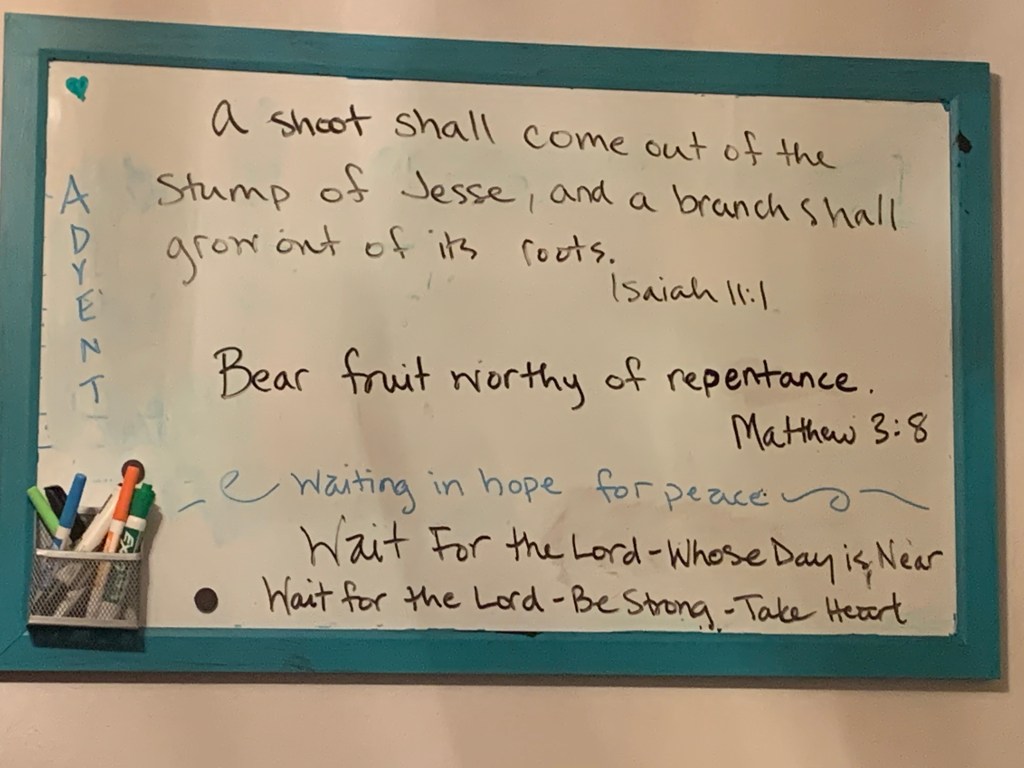 A shoot shall come out of the
stump of Jesse, and a branch shall
grow out of its roots.
Isaiah 11:1
ADVENT
Bear fruit worthy of repentance.
Matthew 3:8
Waiting in hope for peace
Wait For the Lord - Whose Day is Near
Wait for the Lord - Be Strong - Take Heart
EXPO